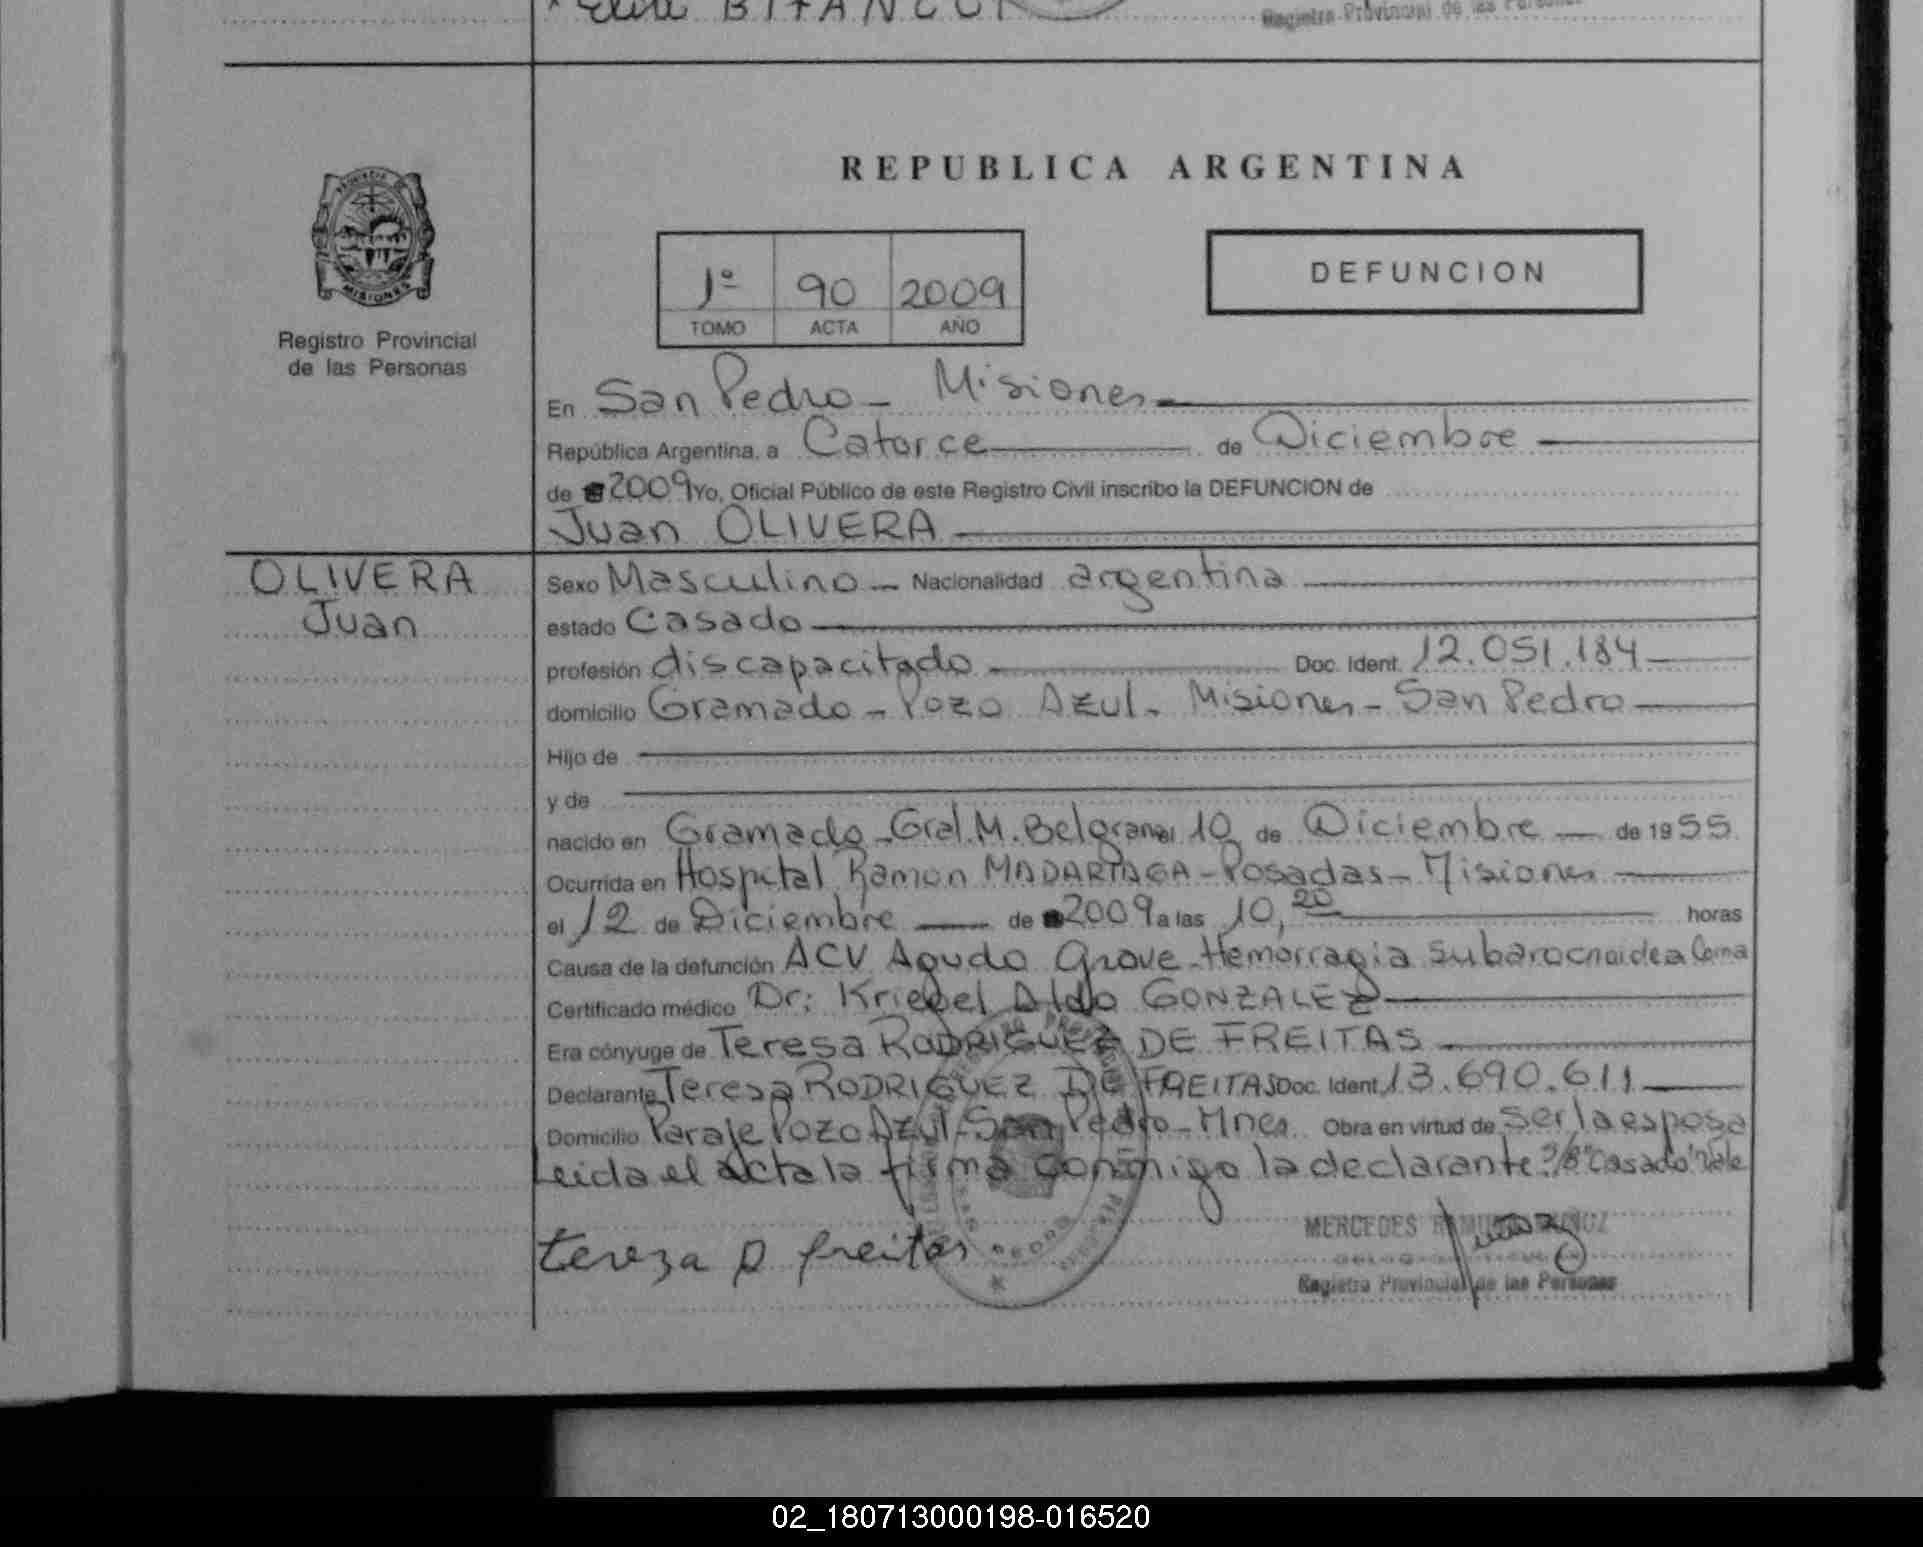 Registro Provincial de las Personas
REPUBLICA ARGENTINA
PROVINCIA DE
MISIONES
Registro Provincial
de las Personas
1º 90 2009
TOMO ACTA AÑO
DEFUNCION
En San Pedro - Misiones
República Argentina, a Catorce de Diciembre
de 2009 Yo, Oficial Público de este Registro Civil inscribo la DEFUNCION de
Juan OLIVERA
OLIVERA
Juan
Sexo Masculino - Nacionalidad argentina
estado Casado
profesión discapacitado Doc. Ident. 12.051.184
domicilio Gramado - Pozo Azul - Misiones - San Pedro
Hijo de
y de
nacido en Gramado - Gral. M. Belgrano el 10 de Diciembre de 1955
Ocurrida en Hospital Ramon MADARIAGA - Posadas - Misiones
el 12 de Diciembre de 2009 a las 10,20 horas
Causa de la defunción ACV Agudo Grave - Hemorragia subarocnoidea Coma
Certificado médico Dr: Kriegel Aldo GONZALEZ
Era cónyuge de Teresa RODRIGUEZ DE FREITAS
Declarante Teresa RODRIGUEZ DE FREITAS Doc. Ident. 13.690.611
Domicilio Paraje Pozo Azul - San Pedro - Mnes. Obra en virtud de ser la esposa
Leida el acta la firma conmigo la declarante S/B "Casado" Vale
tereza D freitas
MERCEDES
Registro Provincial de las Personas
02_180713000198-016520